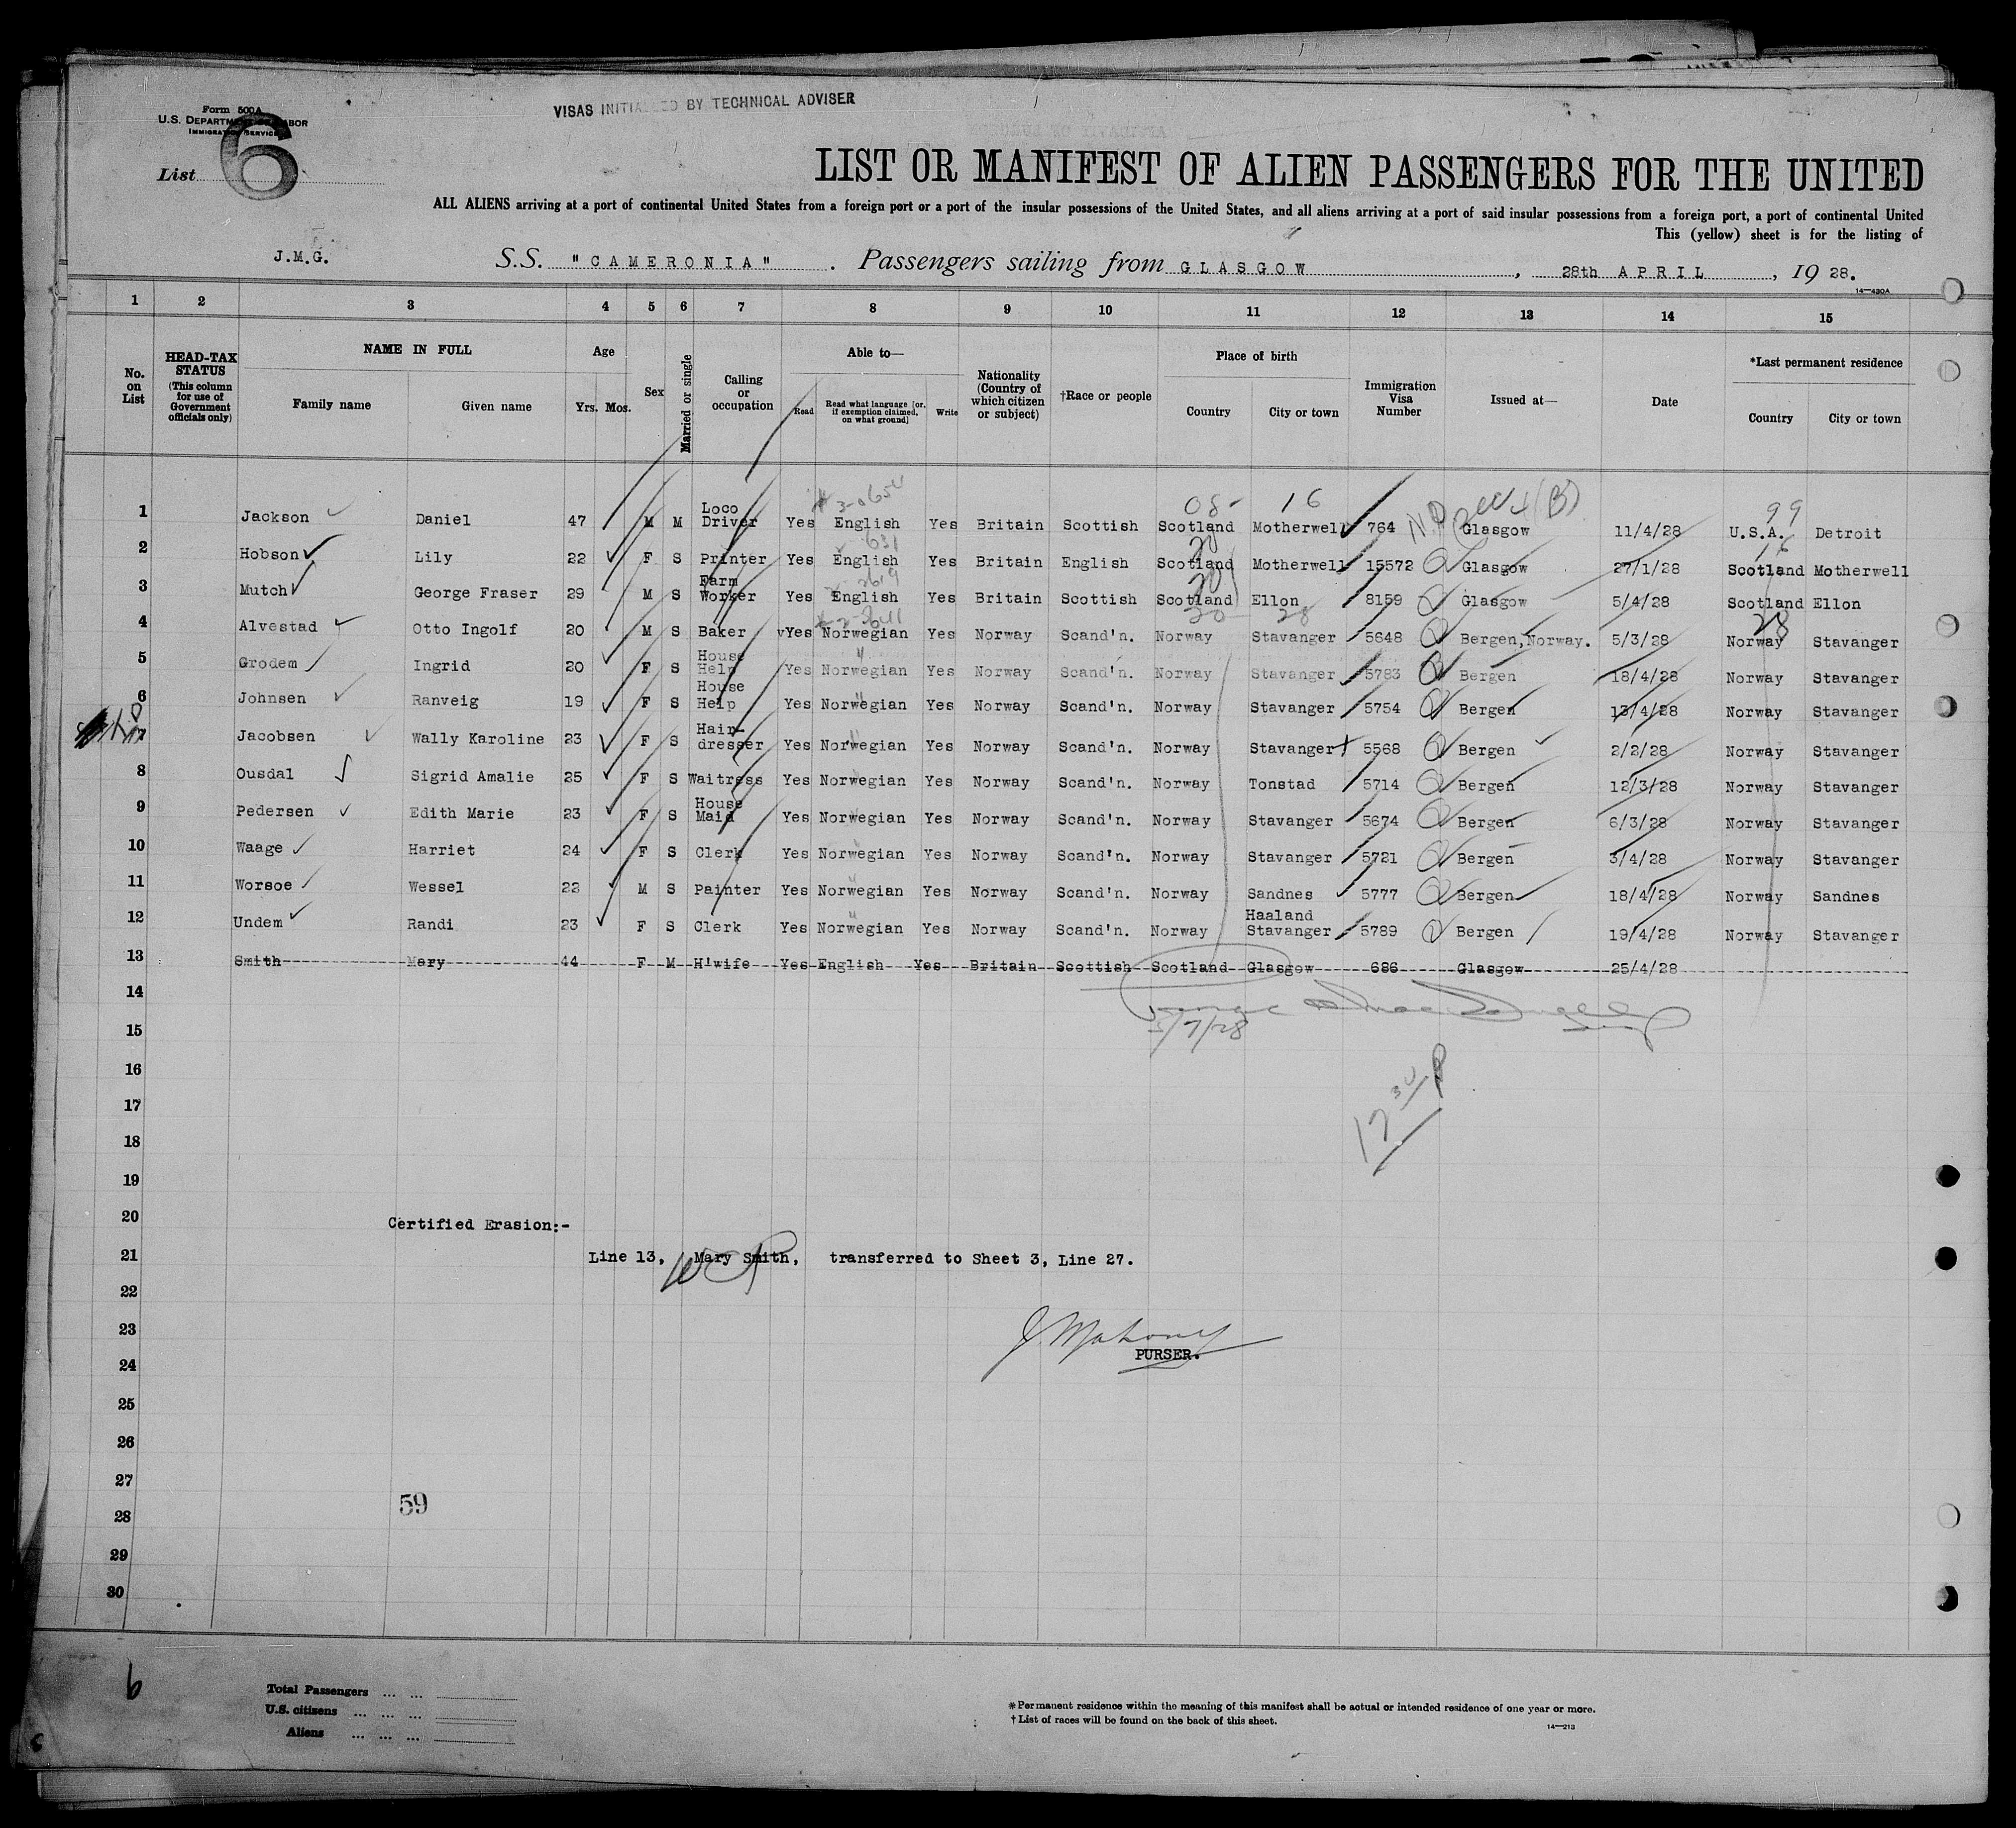 Form 500A
U.S. DEPARTMENT OF LABOR
IMMIGRATION SERVICE
VISAS INITIALED BY TECHNICAL ADVISER
List 6
LIST OR MANIFEST OF ALIEN PASSENGERS FOR THE UNITED
ALL ALIENS arriving at a port of continental United States from a foreign port or a port of the insular possessions of the United States, and all aliens arriving at a port of said insular possessions from a foreign port, a port of continental United
This (yellow) sheet is for the listing of
J.M.G. S.S. "CAMERONIA" . Passengers sailing from GLASGOW, 28th APRIL, 19 28.
14—430A
1 2 3 4 5 6 7 8 9 10 11 12 13 14 15
No. on List HEAD-TAX STATUS (This column for use of Government officials only) NAME IN FULL Family name Given name Age Yrs. Mos. Sex Married or single Calling or occupation Able to— Read Read what language [or, if exemption claimed, on what ground] Write Nationality (Country of which citizen or subject) †Race or people Place of birth Country City or town Immigration Visa Number Issued at— Date *Last permanent residence Country City or town
08- 16 99
1 Jackson Daniel 47 M M Loco Driver Yes English Yes Britain Scottish Scotland Motherwell 764 Glasgow 11/4/28 U.S.A. Detroit
2 Hobson Lily 22 F S Printer Yes English Yes Britain English Scotland Motherwell 15572 Glasgow 27/1/28 Scotland Motherwell
3 Mutch George Fraser 29 M S Farm Worker Yes English Yes Britain Scottish Scotland Ellon 8159 Glasgow 5/4/28 Scotland Ellon
20 28 28
4 Alvestad Otto Ingolf 20 M S Baker Yes Norwegian Yes Norway Scand'n. Norway Stavanger 5648 Bergen, Norway. 5/3/28 Norway Stavanger
5 Grodem Ingrid 20 F S House Help Yes Norwegian Yes Norway Scand'n. Norway Stavanger 5783 Bergen 18/4/28 Norway Stavanger
6 Johnsen Ranveig 19 F S House Help Yes Norwegian Yes Norway Scand'n. Norway Stavanger 5754 Bergen 13/4/28 Norway Stavanger
7 Jacobsen Wally Karoline 23 F S Hair-dresser Yes Norwegian Yes Norway Scand'n. Norway Stavanger 5568 Bergen 2/2/28 Norway Stavanger
8 Ousdal Sigrid Amalie 25 F S Waitress Yes Norwegian Yes Norway Scand'n. Norway Tonstad 5714 Bergen 12/3/28 Norway Stavanger
9 Pedersen Edith Marie 23 F S House Maid Yes Norwegian Yes Norway Scand'n. Norway Stavanger 5674 Bergen 6/3/28 Norway Stavanger
10 Waage Harriet 24 F S Clerk Yes Norwegian Yes Norway Scand'n. Norway Stavanger 5721 Bergen 3/4/28 Norway Stavanger
11 Worsoe Wessel 22 M S Painter Yes Norwegian Yes Norway Scand'n. Norway Sandnes 5777 Bergen 18/4/28 Norway Sandnes
12 Undem Randi 23 F S Clerk Yes Norwegian Yes Norway Scand'n. Norway Haaland Stavanger 5789 Bergen 19/4/28 Norway Stavanger
13 Smith Mary 44 F M H'wife Yes English Yes Britain Scottish Scotland Glasgow 686 Glasgow 25/4/28
14
15 5/7/28
16
17
18
19
20 Certified Erasion:-
21 Line 13, Mary Smith, transferred to Sheet 3, Line 27.
22
23 J. Mahoney
24 PURSER.
25
26
27
28 59
29
30
6
Total Passengers ... ...
U.S. citizens ... ... ...
Aliens ... ... ...
*Permanent residence within the meaning of this manifest shall be actual or intended residence of one year or more.
†List of races will be found on the back of this sheet.
14—213